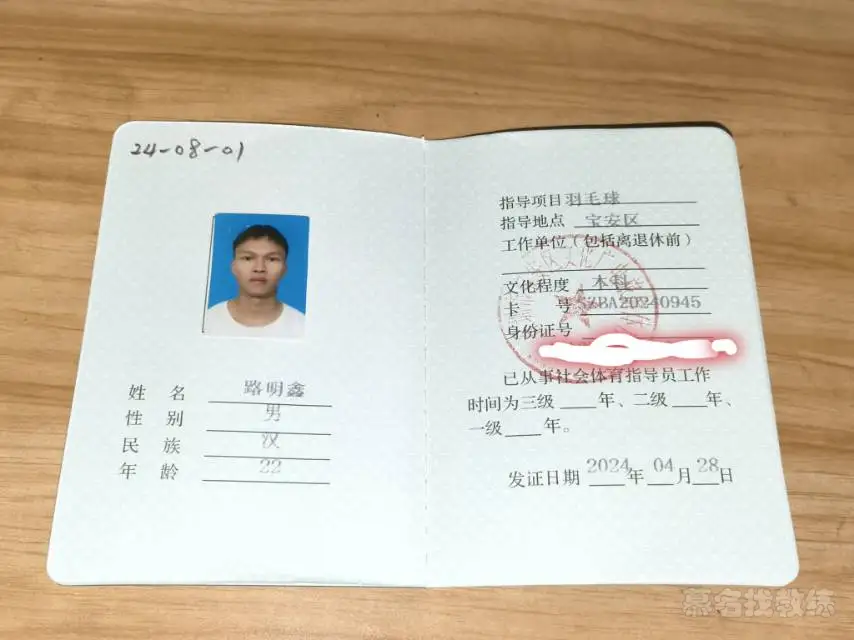 24-08-01
姓名 路明鑫
性别 男
民族 汉
年龄 22
指导项目 羽毛球
指导地点 宝安区
工作单位（包括离退休前）
文化程度 本科
卡号 ZBA20240945
身份证号
已从事社会体育指导员工作
时间为三级____年、二级____年、
一级____年。
发证日期 2024 年 04 月 28 日
慕名找教练